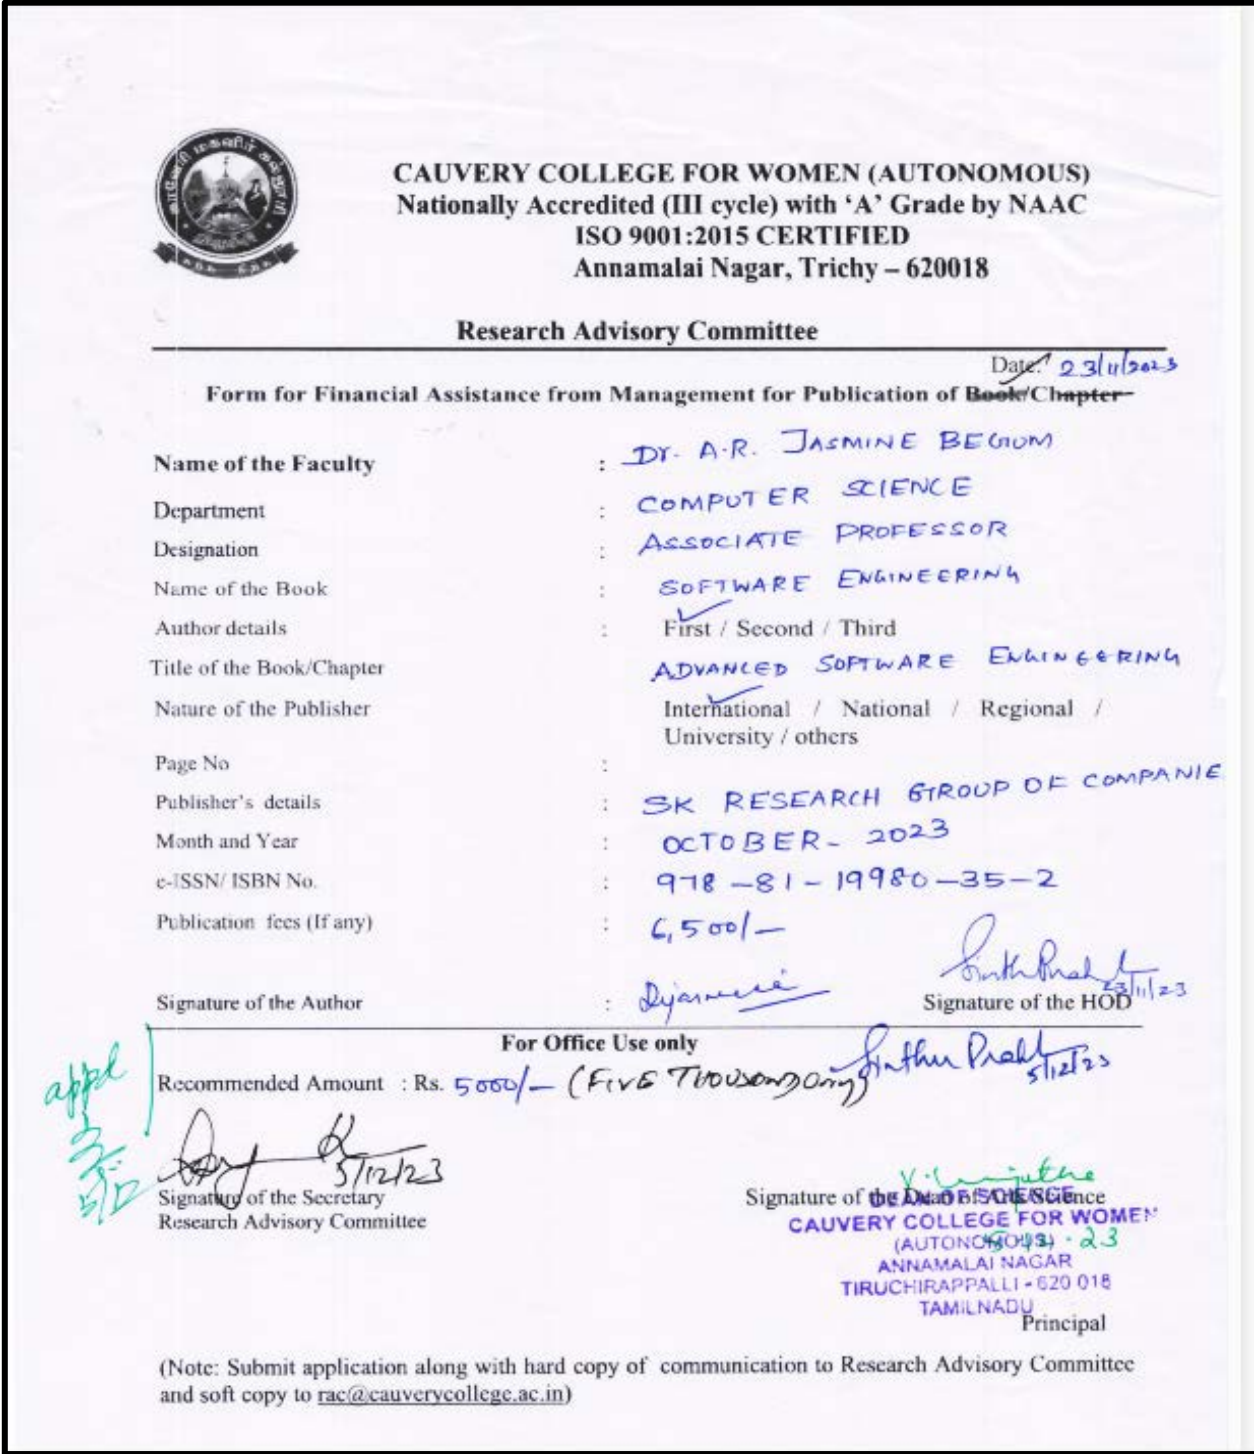 காவேரி மகளிர் கல்லூரி
CAUVERY COLLEGE FOR WOMEN (AUTONOMOUS)
Nationally Accredited (III cycle) with ‘A’ Grade by NAAC
ISO 9001:2015 CERTIFIED
Annamalai Nagar, Trichy – 620018
Research Advisory Committee
Date: 23/11/2023
Form for Financial Assistance from Management for Publication of Book/Chapter
Name of the Faculty : Dr. A.R. JASMINE BEGUM
Department : COMPUTER SCIENCE
Designation : ASSOCIATE PROFESSOR
Name of the Book : SOFTWARE ENGINEERING
Author details : First / Second / Third
Title of the Book/Chapter ADVANCED SOFTWARE ENGINEERING
Nature of the Publisher International / National / Regional /
University / others
Page No :
Publisher's details : SK RESEARCH GROUP OF COMPANIE
Month and Year : OCTOBER - 2023
e-ISSN/ ISBN No. : 978-81-19980-35-2
Publication fees (If any) : 6,500/-
23/11/23
Signature of the Author : Signature of the HOD
For Office Use only
appd
Recommended Amount : Rs. 5000/- (FIVE THOUSAND ONLY)
5/12/23
5/12
5/12/23
Signature of the Secretary Signature of the Dean of Arts Science
Research Advisory Committee
DEAN OF SCIENCE
CAUVERY COLLEGE FOR WOMEN
(AUTONOMOUS)
5.12.23
ANNAMALAI NAGAR
TIRUCHIRAPPALLI - 620 018
TAMILNADU
Principal
(Note: Submit application along with hard copy of communication to Research Advisory Committee
and soft copy to rac@cauverycollege.ac.in)